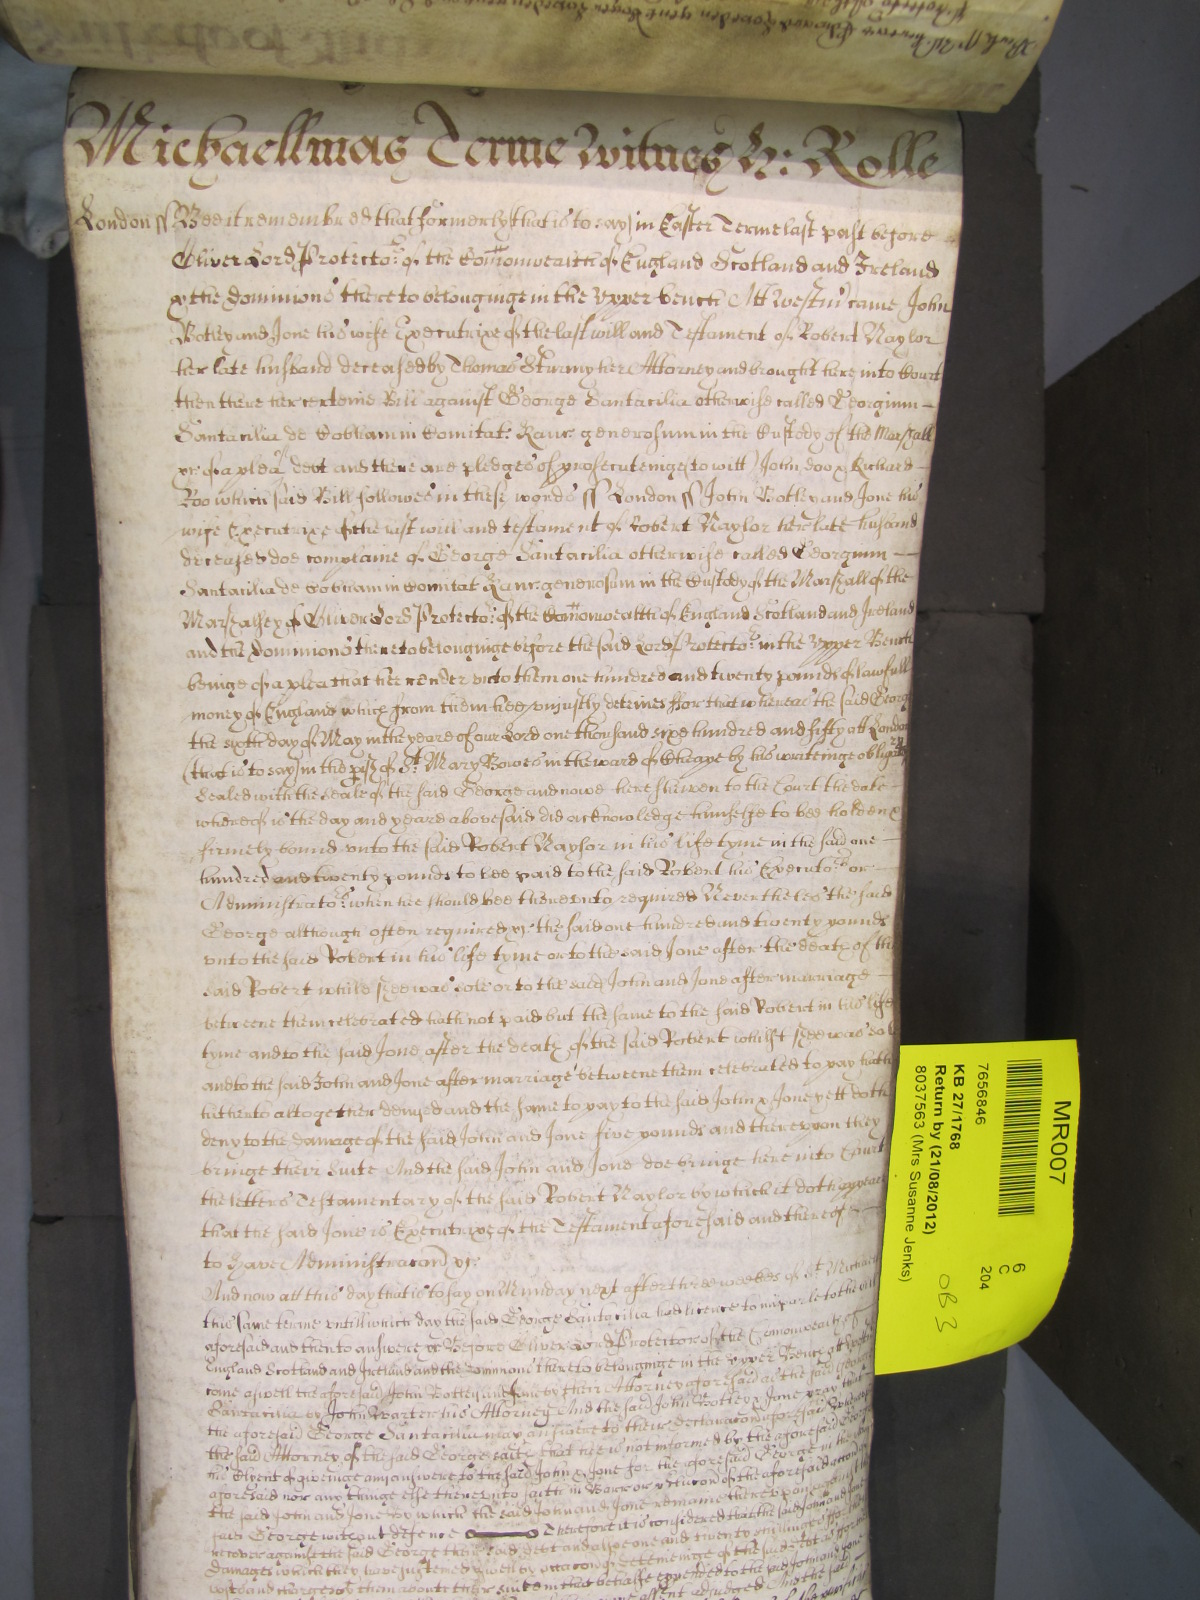 Michaellmas Terme Witnes H: Rolle
London ss Bee it remembred that formerly (that is to say) in Easter Terme last past before
Oliver Lord Protector of the Comonwealth of England Scotland and Ireland
& the Dominions thereto belonginge in the Upper bench Att Westm came John
Botley and Jone his wife Executrixe of the last will and Testament of Robert Naylor
her late husband deceased by Thomas Sturmy her Attorney and brought here into Court
then there her certeine Bill against George Santacilia otherwise called Georgium
Santacilia de Cobham in Comitat Kanc generosum in the Custody of the Marshall
&c of a plea of debt and there are pledges of prosecuteinge (to witt) John doo & Richard
Roo which said Bill followes in these words ss London ss John Botley and Jone his
wife Executrixe of the last will and testament of Robert Naylor her late husband
deceased doe complaine of George Santacilia otherwise called Georgium
Santacilia de Cobham in Comitat Kanc generosum in the Custody of the Marshall of the
Marshalsey of Oliver Lord Protector of the Comonwealth of England Scotland and Ireland
and the Dominions thereto belonginge before the said Lord Protector in the Upper Bench
beinge of a plea that hee render unto them one hundred and twenty pounds of lawfull
money of England which from them hee unjustly deteines ffor that whereas the said George
the sixth day of May in the yeare of our Lord one thousand sixe hundred and fifty att London
(that is to say) in the pish of St Mary Bowes in the ward of Cheape by his writeinge obligatory
Sealed with the seale of the said George and nowe here shewen to the Court the date
whereof is the day and yeare abovesaid did acknowledge himselfe to bee holden &
firmely bound unto the said Robert Naylor in his life tyme in the said one
hundred and twenty pounds to bee paid to the said Robert his Executors or
Administrators when hee should bee thereunto required Neverthelesse the said
George although often required &c the said one hundred and twenty pounds
unto the said Robert in his life tyme or to the said Jone after the death of the
said Robert while shee was sole or to the said John and Jone after marriage
betweene them celebrated hath not paid but the same to the said Robert in his life
tyme and to the said Jone after the death of the said Robert whilst shee was sole
and to the said John and Jone after marriage betweene them celebrated to pay hath
hitherto altogether denyed and the same to pay to the said John & Jone yett doth
deny to the damage of the said John and Jone five pounds and thereupon they
bringe their suite And the said John and Jone doe bringe here into Court
the letters Testamentary of the said Robert Naylor by which it doth appeare
that the said Jone is Executrixe of the Testament aforesaid and thereof
to have Administracon &c
And now att this day that is to say on Munday next after three weekes of St Michael
this same terme untill which day the said George Santacilia had licence to imparle to the Bill
aforesaid and then to answere &c Before Oliver Lord Protector of the Comonwealth of
England Scotland and Ireland and the Dominions thereto belonginge in the Upper Bench att Westm
come aswell the aforesaid John Botley and Jone by their Attorney aforesaid as the said George
Santacilia by John Warter his Attorney And the said John Botley & Jone pray that
the aforesaid George Santacilia may answere to their declaracon aforesaid Whereupon
the said Attorney of the said George saith that hee is not informed by the aforesaid George
his Clyent of giveinge any answere to the said John & Jone for the aforesaid George in the
aforesaid nor any thinge else thereunto saith in Barr or preclusion of the aforesaid accon
the said John and Jone by which the said John and Jone remaine thereupon against the
said George without defence Therefore it is considered that the said John and Jone
recover against the said George their said debt and alsoe one and twenty shillings
damages which they have susteyned aswell by occacon of deteineinge of the said debt as for their
costs and charges by them about their suite in that behalfe expended to the said John and Jone
assent adjudged And the said
MR007
6
C
204
7656846
KB 27/1768
Return by (21/08/2012)
8037563 (Mrs Susanne Jenks)
OB 3